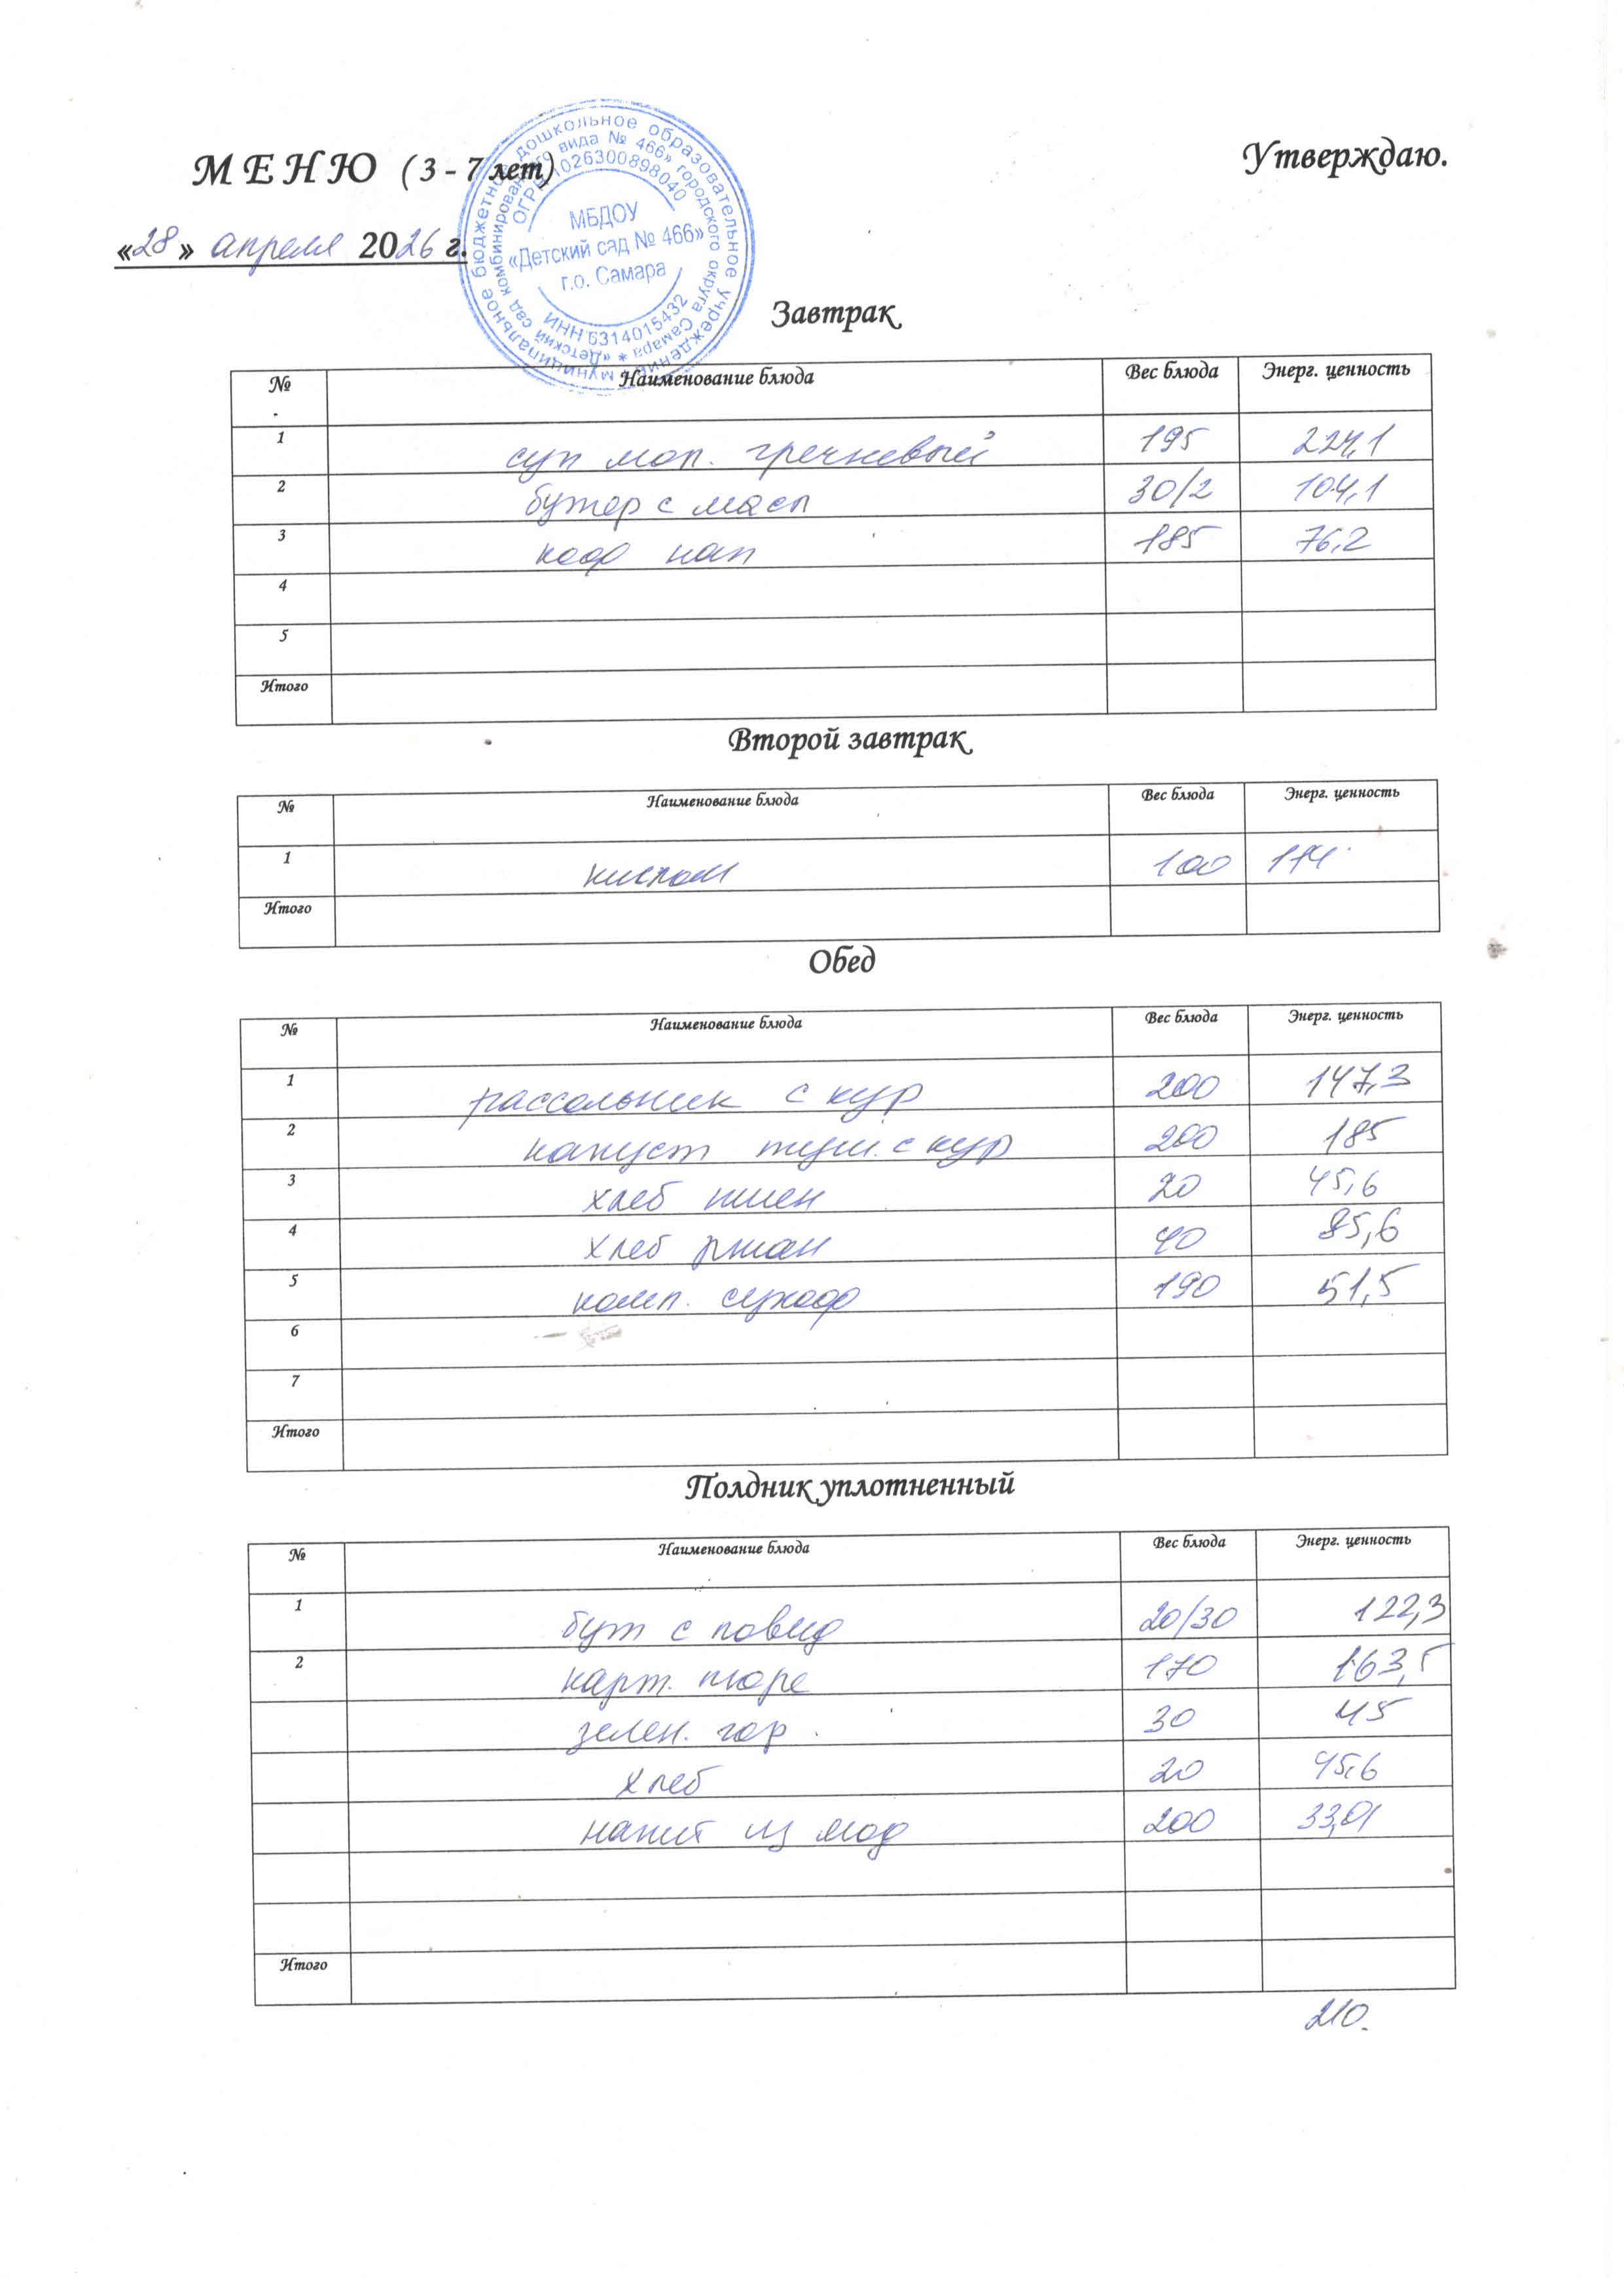 МЕНЮ (3 - 7 лет)
Утверждаю.
«28» апреля 2026 г.
Муниципальное бюджетное дошкольное образовательное учреждение
«Детский сад комбинированного вида № 466» городского округа Самара *
ОГРН 1026300898040
МБДОУ
«Детский сад № 466»
г.о. Самара
ИНН 6314015432
Завтрак
№ Наименование блюда Вес блюда Энерг. ценность
1 суп мол. гречневый 195 224,1
2 бутер с масл 30/2 104,1
3 коф нап 185 76,2
4
5
Итого
Второй завтрак
№ Наименование блюда Вес блюда Энерг. ценность
1 кислом 100
Итого
Обед
№ Наименование блюда Вес блюда Энерг. ценность
1 рассольник с кур 200 147,3
2 капуст туш. с кур 200 185
3 хлеб пшен 20 45,6
4 хлеб ржан 40 85,6
5 комп. сухоф 190 51,5
6
7
Итого
Полдник уплотненный
№ Наименование блюда Вес блюда Энерг. ценность
1 бут с повид 20/30 122,3
2 карт. пюре 170 163,5
зелен. гор. 30 45
хлеб 20 45,6
напит из мод 200 33,01
Итого
210.